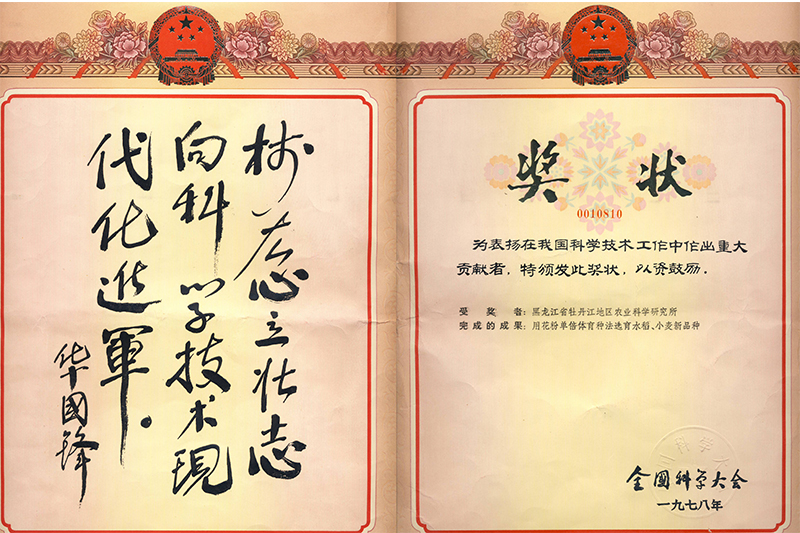 树雄心立壮志
向科学技术現
代化進軍。
华國锋
奖状
0010810
为表扬在我国科学技术工作中作出重大
贡献者，特颁发此奖状，以资鼓励．
受奖者：黑龙江省牡丹江地区农业科学研究所
完成的成果：用花粉单倍体育种法选育水稻、小麦新品种
全國科学大会
一九七八年